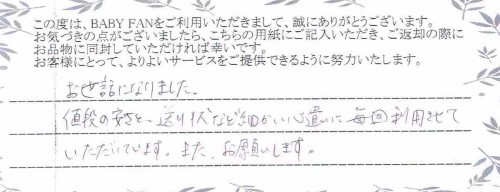 この度は、BABY FANをご利用いただきまして、誠にありがとうございます。
お気づきの点がございましたら、こちらの用紙にご記入いただき、ご返却の際に
お品物に同封していただければ幸いです。
お客様にとって、よりよいサービスをご提供できるように努力いたします。
お世話になりました。
値段の安さと、送り状など細かい心遣いに毎回利用させて
いただいています。また、お願いします。